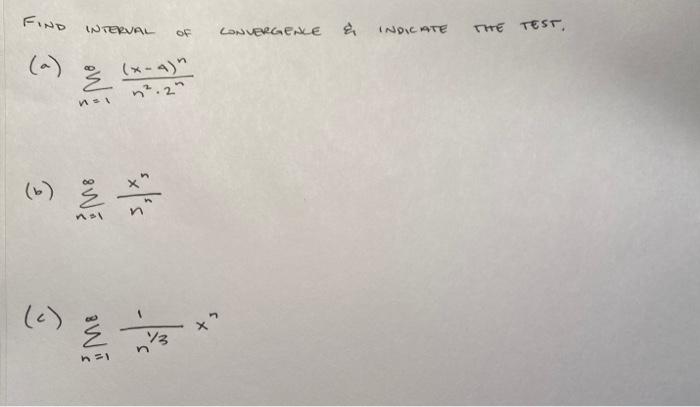 FIND INTERVAL OF CONVERGENCE & INDICATE THE TEST.
(a) ∞ Σ n=1 (x-4)ⁿ / n²·2ⁿ
(b) ∞ Σ n=1 xⁿ / nⁿ
(c) ∞ Σ n=1 1 / n^1/3 xⁿ